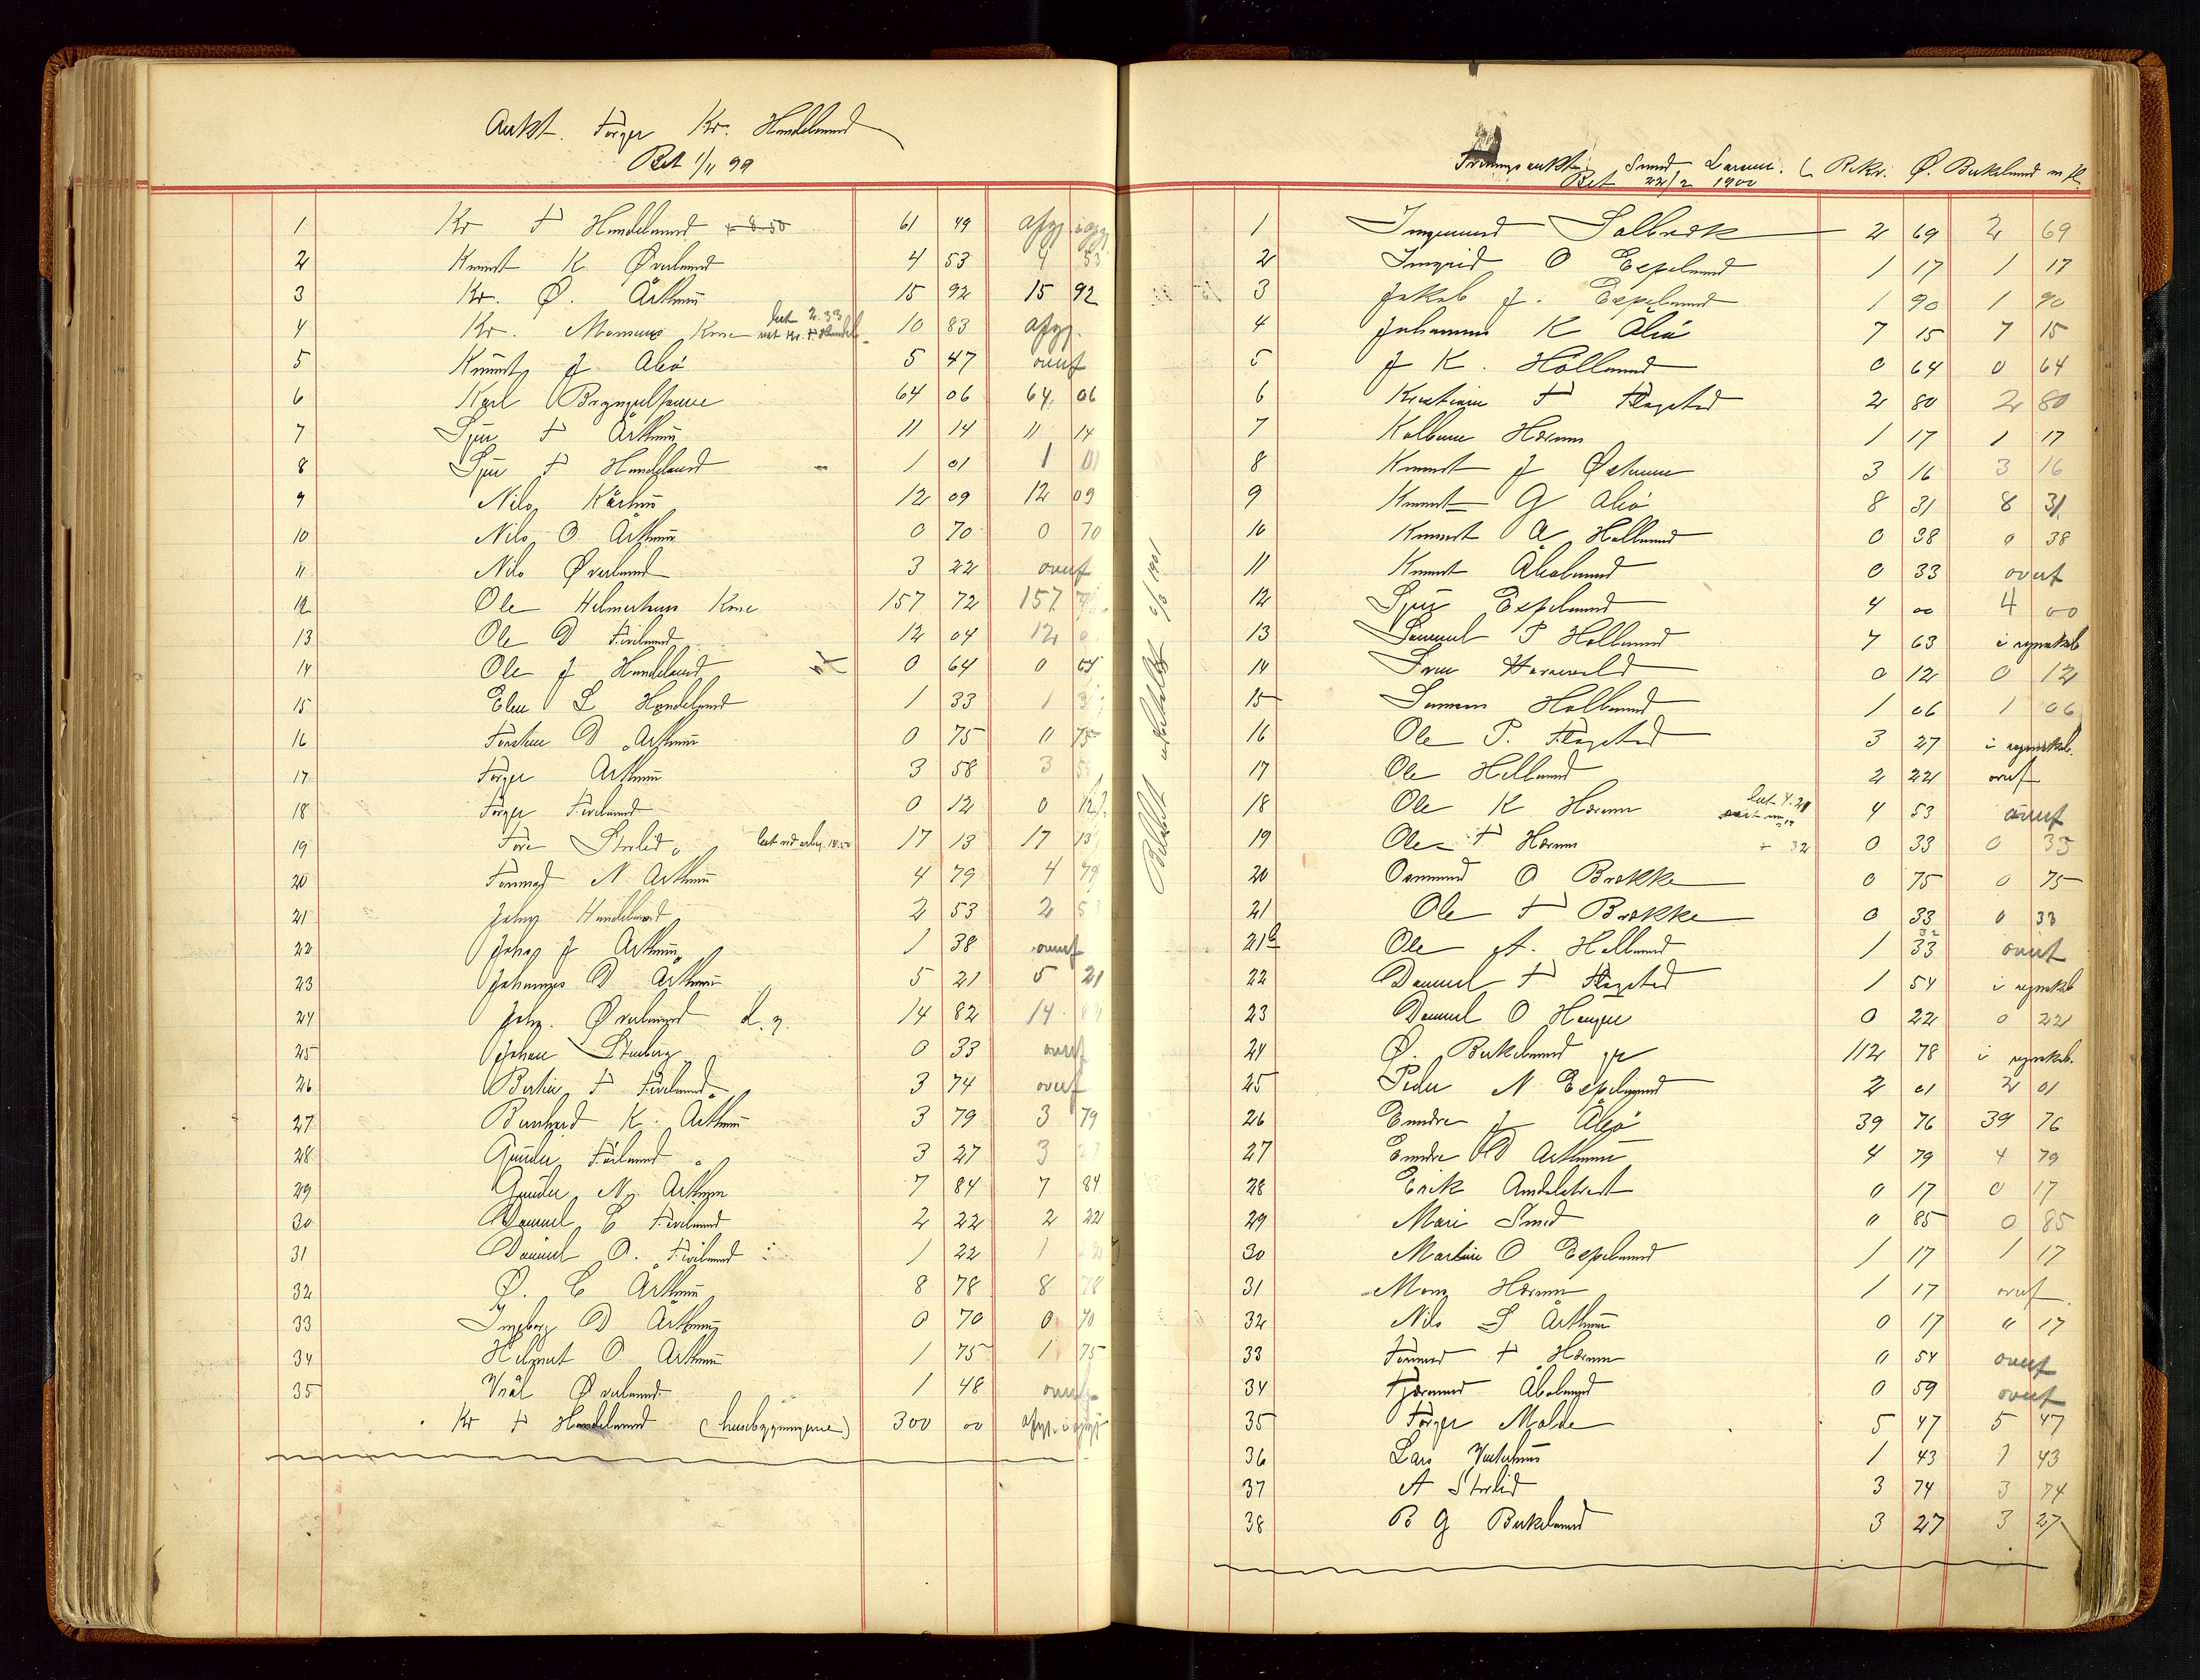 Aukt. Torger Kr. Handeland
Bet 1/11 99
1 Kr T Handeland + 8 50 61 49 afgj i opgj
2 Knut K. Øverland 4 53 4 53
3 Kr. Ø. Årthun 15 92 15 92
4 Kr. Monsens Kone bet 2.33 10 83 afgj.
5 Knut J Alsö 5 47 overf
6 Karl Bryngelsen 64 06 64 06
7 Sjur T Årthun 11 14 11 14
8 Sjur T Handeland 1 01 1 01
9 Nils Kårhus 12 09 12 09
10 Nils O Årthun 0 70 0 70
11 Nils Øverland 3 22 overf
12 Ole Helmersens Kone 157 72 157 7
13 Ole D Fiveland 12 04 12 0
14 Ole J Handeland 0 64 0 64
15 Elen S Handeland 1 33 1 3
16 Torsten D Årthun 0 75 0 75
17 Torger Arthun 3 58 3 5
18 Torger Fiveland 0 12 0 12
19 Tore Storlid bet ved arbg. 18.50 17 13 17 13
20 Tormod N Arthun 4 79 4 79
21 Johs Handeland 2 53 2 53
22 Johs J Arthun 1 38 overf
23 Johannes D Årthun 5 21 5 21
24 Johs. Øverland d. y. 14 82 14 82
25 Johan Stenberg 0 33 overf
26 Bertin T Fivelund 3 74 overf
27 Bernhard K. Arthun 3 79 3 79
28 Gunder Fivelund 3 27 3 27
29 Gunder N. Arthun 7 84 7 84
30 Samuel E Fivelund 2 22 2 22
31 Daniel O. Fivelund 1 22 1 2
32 Ø. E Årthun 8 78 8 78
33 Ingeborg D Årthun 0 70 0 70
34 Helmert O Arthun 1 75 1 75
35 Vrål Øverland 1 48 overf
Kr T Handeland (husebygningerne) 300 00 afgj. i opgj
Tvangsauktion Svend Larsen. (Rekv. Ø. Birkeland m fl.
Bet 22/2 1900
1 Ingemund Solbræk 2 69 2 69
2 Ingrid O Espeland 1 17 1 17
3 Jakob J. Espeland 1 90 1 90
4 Johannes K Ålsö 7 15 7 15
5 J K. Hölland 0 64 0 64
6 Kristian T Flagstad 2 80 2 80
7 Kolben Hærum 1 17 1 17
8 Knut J Østrem 3 16 3 16
9 Knut G Alsö 8 31 8 31
10 Knut A Holland 0 38 0 38
11 Knut Åboland 0 33 overf
12 Sjur Espeland 4 00 4 00
13 Samuel P Holland 7 63 i regnskab
14 Sven Harevold 0 12 0 12
15 Samson Holland 1 06 1 06
16 Ole P. Flagstad 3 27 i regnskab.
17 Ole Helland 2 22 overf
18 Ole K Hærum bet 4.21 4 53 overf
19 Ole T Hærum + 32 0 33 0 33
20 Osmund O Brække 0 75 0 75
21 Ole T Brække 0 33 0 33
21b Ole A. Helland 1 33 32 overf
22 Samuel T Flagstad 1 54 i regnskab
23 Samuel O Haugen 0 22 0 22
24 Ø. Birkeland 112 78 i regnskab.
25 Peder N Espeland 2 01 2 01
26 Endre J Ålsö 39 76 39 76
27 Endre D Arthun 4 79 4 79
28 Erik Amdalstvedt 0 17 0 17
29 Mari Smed 0 85 0 85
30 Martin O Espeland 1 17 1 17
31 Mons Hærum 1 17 overf.
32 Nils S Årthun 0 17 " 17
33 Tormod T Hærum 0 54 overf
34 Tjærand Åboland 0 59 overf
35 Torger Molde 5 47 5 47
36 Lars Vesterhus 1 43 1 43
37 A Storlid 3 74 3 74
38 B G Birkeland 3 27 3 27